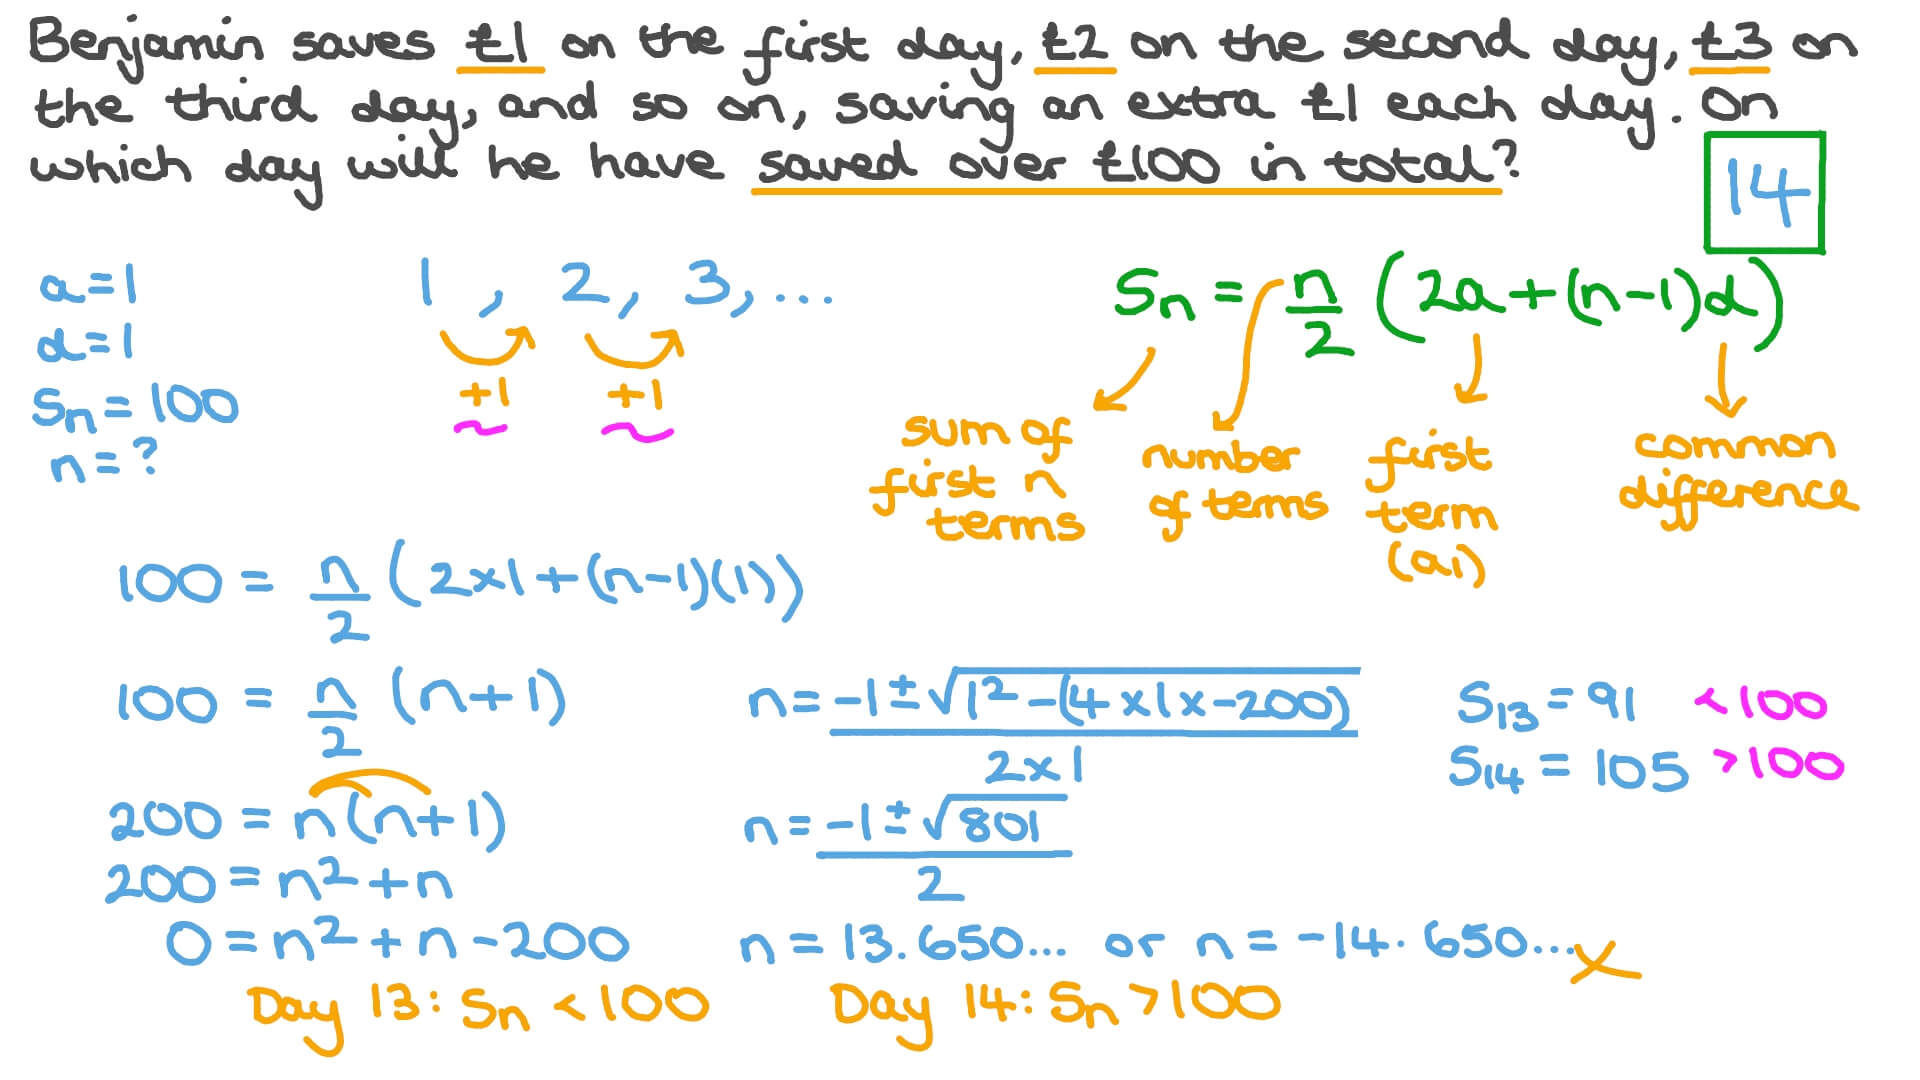 Benjamin saves £1 on the first day, £2 on the second day, £3 on
the third day, and so on, saving an extra £1 each day. On
which day will he have saved over £100 in total?
14
a=1
d=1
Sn = 100
n = ?
1, 2, 3, ...
+1 +1
Sn = n/2 (2a+(n-1)d)
sum of first n terms
number of terms
first term (a1)
common difference
100 = n/2 (2×1+(n-1)(1))
100 = n/2 (n+1)
200 = n(n+1)
200 = n²+n
0 = n²+n-200
n = -1±√1²-(4×1×-200) / 2×1
n = -1±√801 / 2
n = 13.650... or n = -14.650... X
S13 = 91 <100
S14 = 105 >100
Day 13: Sn <100
Day 14: Sn >100